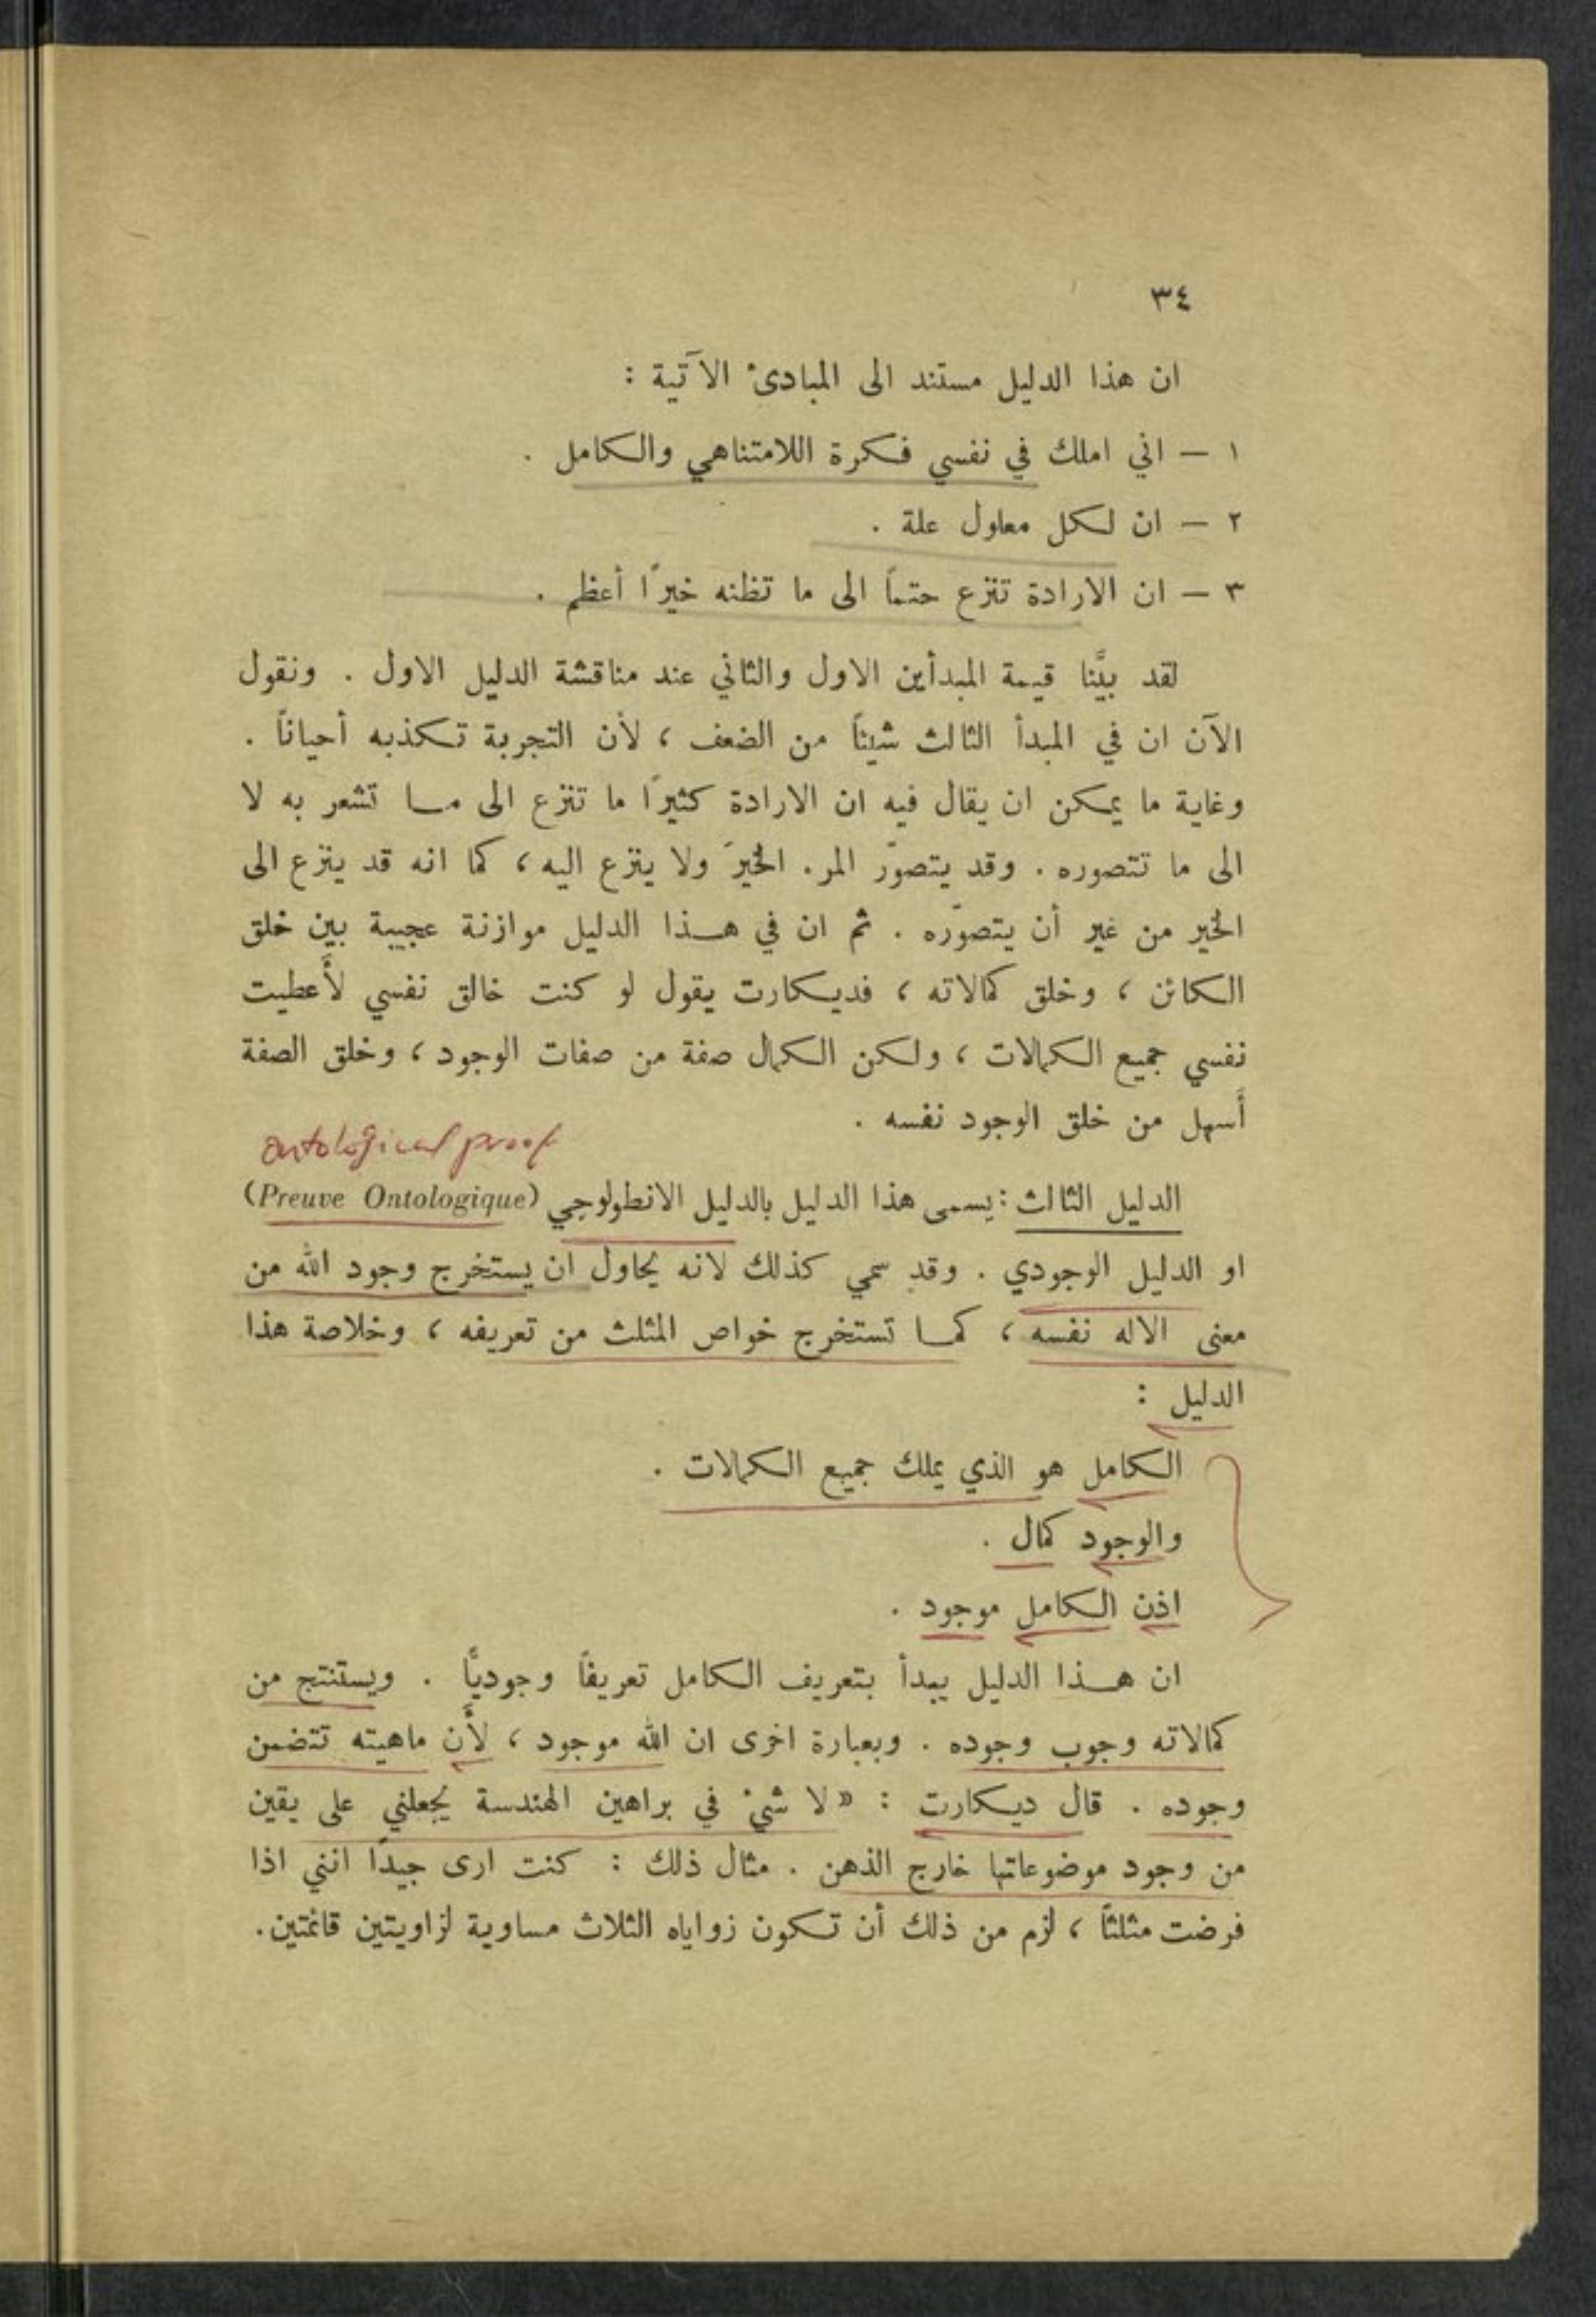 ٣٤
ان هذا الدليل مستند الى المبادئ الآتية :
١ — اني املك في نفسي فكرة اللامتناهي والكامل .
٢ — ان لكل معلول علة .
٣ — ان الارادة تنزع حتماً الى ما تظنه خيرًا أعظم .
لقد بيَّنا قيمة المبدأين الاول والثاني عند مناقشة الدليل الاول . ونقول
الآن ان في المبدأ الثالث شيئاً من الضعف ، لأن التجربة تكذبه أحياناً .
وغاية ما يمكن ان يقال فيه ان الارادة كثيرًا ما تنزع الى ما تشعر به لا
الى ما تتصوره . وقد يتصوّر المرء الخيرَ ولا ينزع اليه ، كما انه قد ينزع الى
الخير من غير أن يتصوّره . ثم ان في هذا الدليل موازنة عجيبة بين خلق
الكائن ، وخلق كمالاته ، فديكارت يقول لو كنت خالق نفسي لأَعطيت
نفسي جميع الكمالات ، ولكن الكمال صفة من صفات الوجود ، وخلق الصفة
أَسهل من خلق الوجود نفسه .
ontological proof
الدليل الثالث : يسمى هذا الدليل بالدليل الانطولوجي (Preuve Ontologique)
او الدليل الوجودي . وقد سمي كذلك لانه يحاول ان يستخرج وجود الله من
معنى الاله نفسه ، كما تستخرج خواص المثلث من تعريفه ، وخلاصة هذا
الدليل :
الكامل هو الذي يملك جميع الكمالات .
والوجود كمال .
اذن الكامل موجود .
ان هذا الدليل يبدأ بتعريف الكامل تعريفاً وجوديًّا . ويستنتج من
كمالاته وجوب وجوده . وبعبارة اخرى ان الله موجود ، لأَن ماهيته تتضمن
وجوده . قال ديكارت : « لا شيْ في براهين الهندسة يجعلني على يقين
من وجود موضوعاتها خارج الذهن . مثال ذلك : كنت ارى جيداً انني اذا
فرضت مثلثاً ، لزم من ذلك أن تكون زواياه الثلاث مساوية لزاويتين قائمتين.